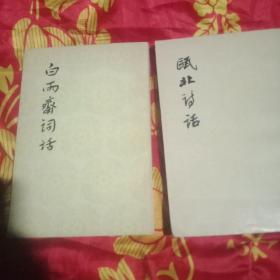 白雨斋词话
瓯北诗话